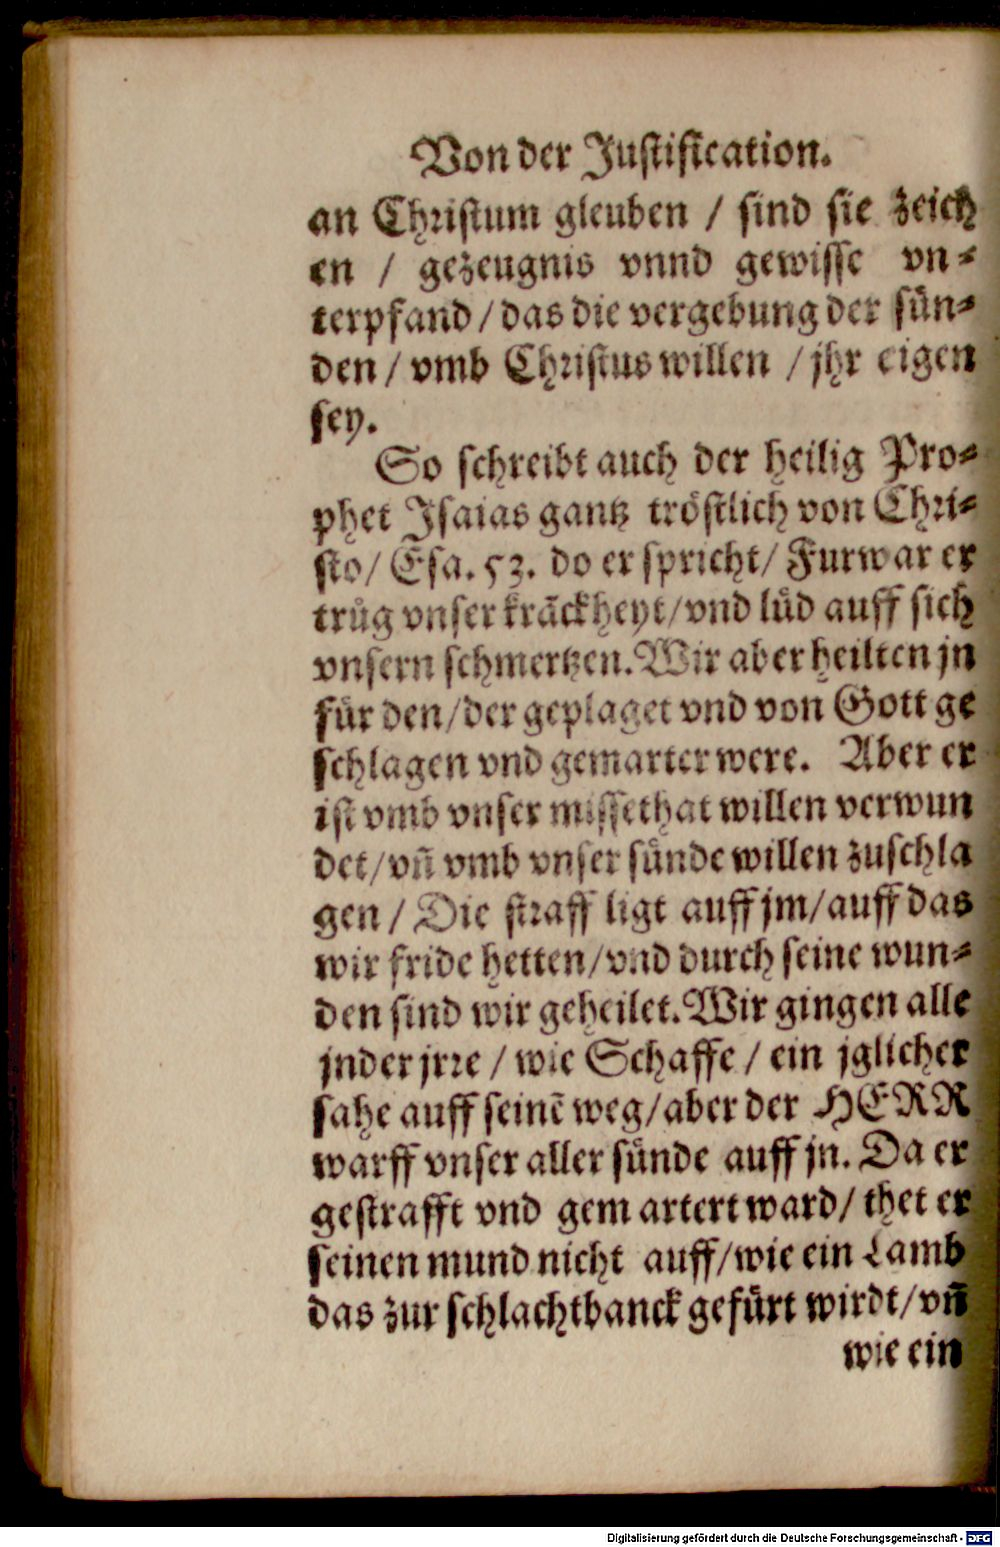 Von der Justification.
an Christum gleuben / sind sie zeich
en / gezeugnis vnnd gewisse vn⸗
terpfand / das die vergebung der sün⸗
den / vmb Christus willen / jhr eigen
sey.
So schreibt auch der heilig Pro⸗
phet Isaias gantz tröstlich von Chri⸗
sto / Esa. 53. do er spricht / Furwar er
trůg vnser krãckheyt / vnd lůd auff sich
vnsern schmertzen. Wir aber heilten jn
für den / der geplaget vnd von Gott ge
schlagen vnd gemarter were. Aber er
ist vmb vnser missethat willen verwun
det / vñ vmb vnser sünde willen zuschla
gen / Die straff ligt auff jm / auff das
wir fride hetten / vnd durch seine wun⸗
den sind wir geheilet. Wir gingen alle
jnder jrre / wie Schaffe / ein jglicher
sahe auff seinẽ weg / aber der HERR
warff vnser aller sünde auff jn. Da er
gestrafft vnd gem artert ward / thet er
seinen mund nicht auff / wie ein Lamb
das zur schlachtbanck gefürt wirdt / vñ
wie ein
Digitalisierung gefördert durch die Deutsche Forschungsgemeinschaft - DFG